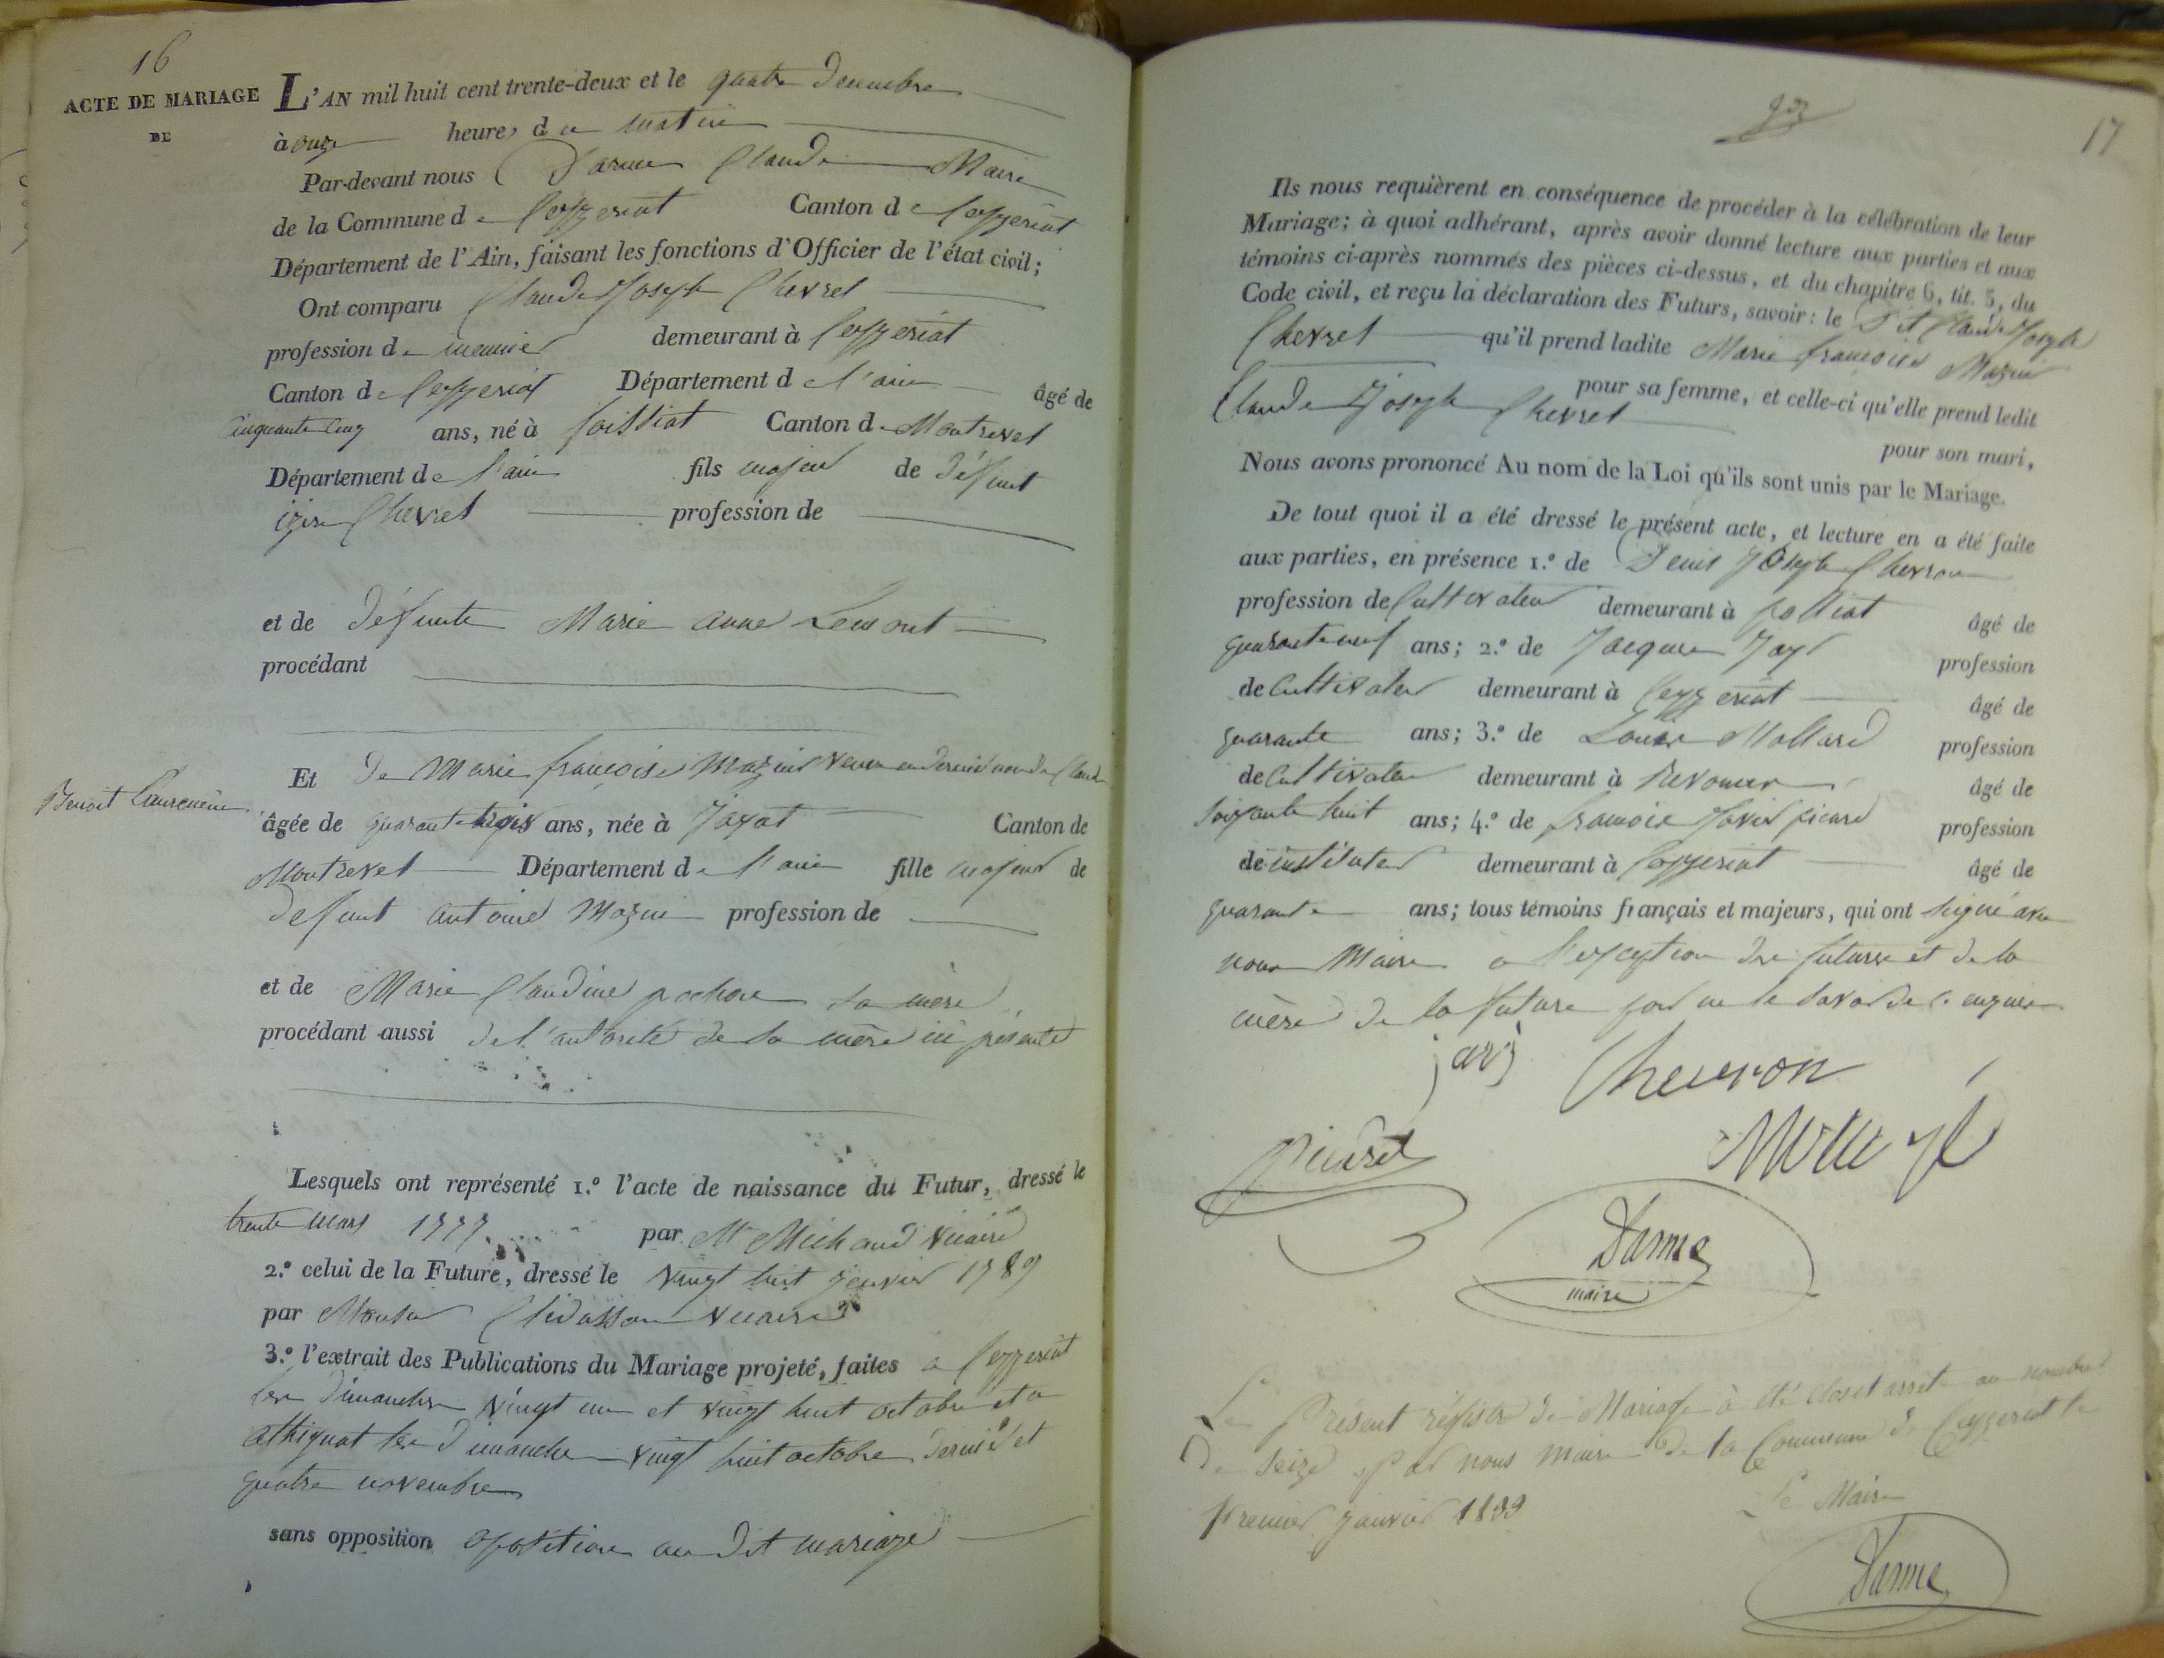 16
ACTE DE MARIAGE
DE
L'AN mil huit cent trente-deux et le quatre Decembre
à onze heures du matin
Par-devant nous Darme Claude Maire
de la Commune de Ceyzeriat Canton de Ceyzeriat
Département de l'Ain, faisant les fonctions d'Officier de l'état civil;
Ont comparu Claude Joseph Chevret
profession de meunier demeurant à Ceyzeriat
Canton de Ceyzeriat Département de l'ain âgé de
Cinquante Cinq ans, né à foissiat Canton de Montrevel
Département de l'ain fils majeur de défunt
Chevret profession de
et de défunte Marie anne
procédant
Et de Marie françoise Mazuir veuve en derniere de Claude
Benoit
âgée de quarante trois ans, née à Jayat Canton de
Montrevel Département de l'ain fille majeure de
defunt antoine Mazuir profession de
et de Marie Claudine pochon sa mère
procédant aussi de l'autorité de sa mère ici présente
Lesquels ont représenté 1.º l'acte de naissance du Futur, dressé le
trente mars 1777 par Mr Michaud vicaire
2.º celui de la Future, dressé le vingt huit janvier 1789
par vicaire
3.º l'extrait des Publications du Mariage projeté, faites a Ceyzeriat
les dimanches vingt un et vingt huit octobre et a
attignat les dimanches vingt huit octobre dernier et
quatre novembre
sans opposition opposition au dit mariage
17
Ils nous requièrent en conséquence de procéder à la célébration de leur
Mariage; à quoi adhérant, après avoir donné lecture aux parties et aux
témoins ci-après nommés des pièces ci-dessus, et du chapitre 6, tit. 5, du
Code civil, et reçu la déclaration des Futurs, savoir: le dit Claude Joseph
Chevret qu'il prend ladite Marie françoise Mazuir
pour sa femme, et celle-ci qu'elle prend ledit
Claude Joseph Chevret
pour son mari,
Nous avons prononcé Au nom de la Loi qu'ils sont unis par le Mariage.
De tout quoi il a été dressé le présent acte, et lecture en a été faite
aux parties, en présence 1.º de Denis Joseph Chevron
profession de Cultivateur demeurant à polliat âgé de
quarante neuf ans; 2.º de Jacques Jayr profession
de Cultivateur demeurant à Ceyzeriat âgé de
quarante ans; 3.º de Louis Mollard profession
de Cultivateur demeurant à Revonnas âgé de
soixante huit ans; 4.º de françois picard profession
de instituteur demeurant à Ceyzeriat âgé de
quarante ans; tous témoins français et majeurs, qui ont signé avec
nous Maire a l'exception des futurs et de la
mère de la future pour ne le savoir de ce enquis
jayr Chevron
picard
Darme
maire
Le Présent régistre de Mariage à été clos et arreté au nombre
De Seize Par nous Maire de la Commune de Ceyzeriat le
Premier janvier 1833
Le Maire
Darme